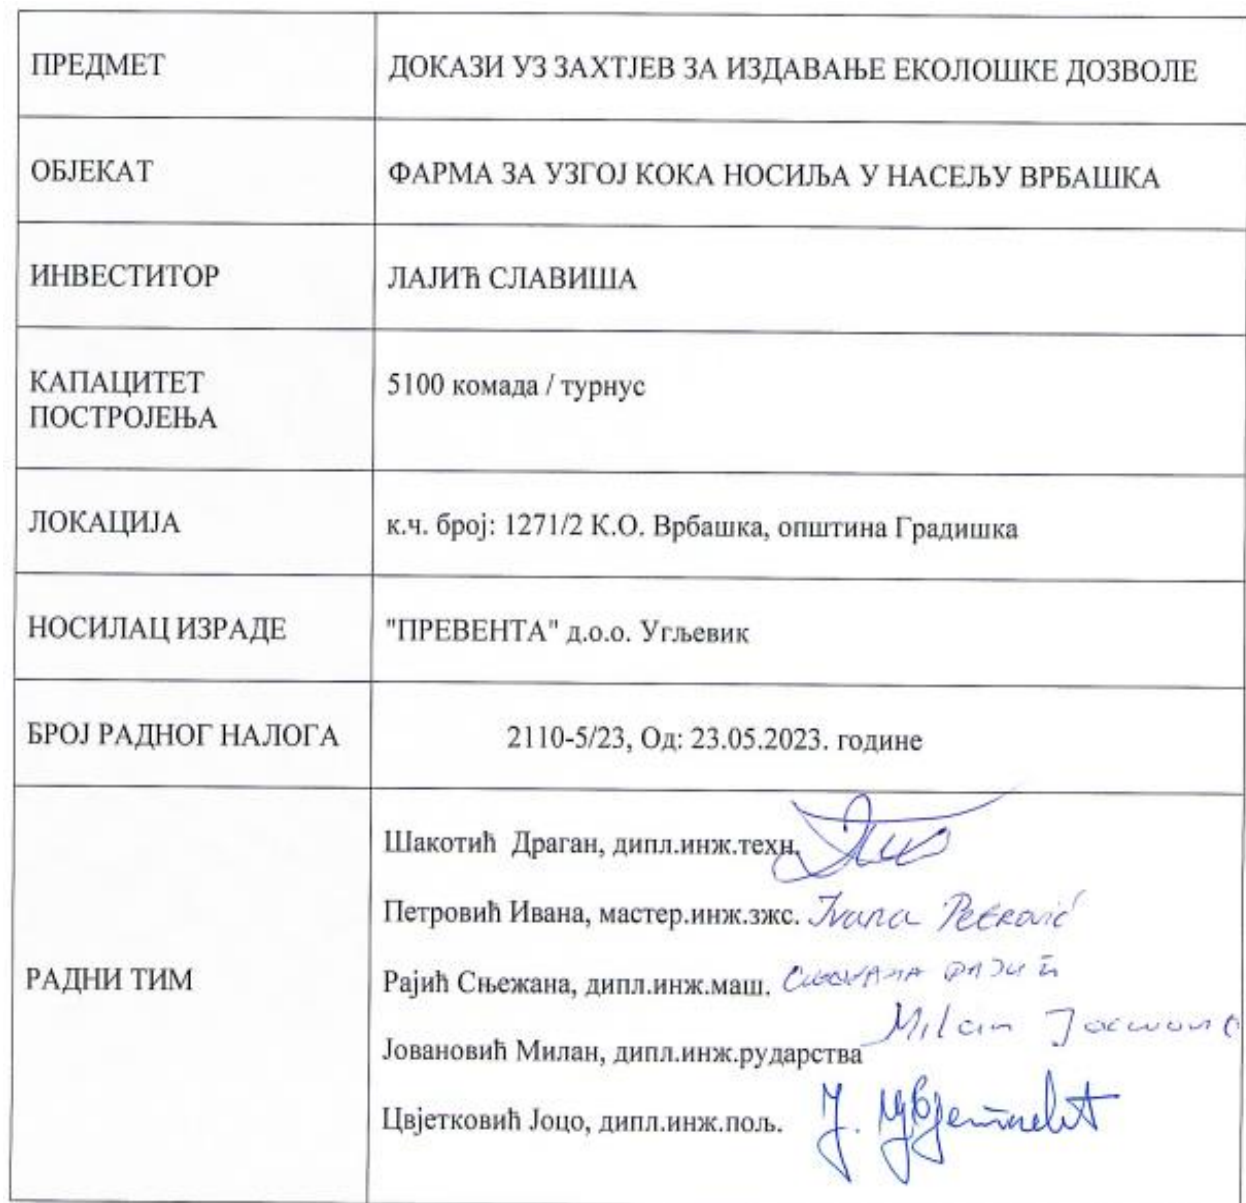 ПРЕДМЕТ
ДОКАЗИ УЗ ЗАХТЈЕВ ЗА ИЗДАВАЊЕ ЕКОЛОШКЕ ДОЗВОЛЕ
ОБЈЕКАТ
ФАРМА ЗА УЗГОЈ КОКА НОСИЉА У НАСЕЉУ ВРБАШКА
ИНВЕСТИТОР
ЛАЈИЋ СЛАВИША
КАПАЦИТЕТ
ПОСТРОЈЕЊА
5100 комада / турнус
ЛОКАЦИЈА
к.ч. број: 1271/2 К.О. Врбашка, општина Градишка
НОСИЛАЦ ИЗРАДЕ
"ПРЕВЕНТА" д.о.о. Угљевик
БРОЈ РАДНОГ НАЛОГА
2110-5/23, Од: 23.05.2023. године
РАДНИ ТИМ
Шакотић Драган, дипл.инж.техн.
Петровић Ивана, мастер.инж.зжс. Ivana Petrović
Рајић Сњежана, дипл.инж.маш.
Milan
Јовановић Милан, дипл.инж.рударства
Цвјетковић Јоцо, дипл.инж.пољ.